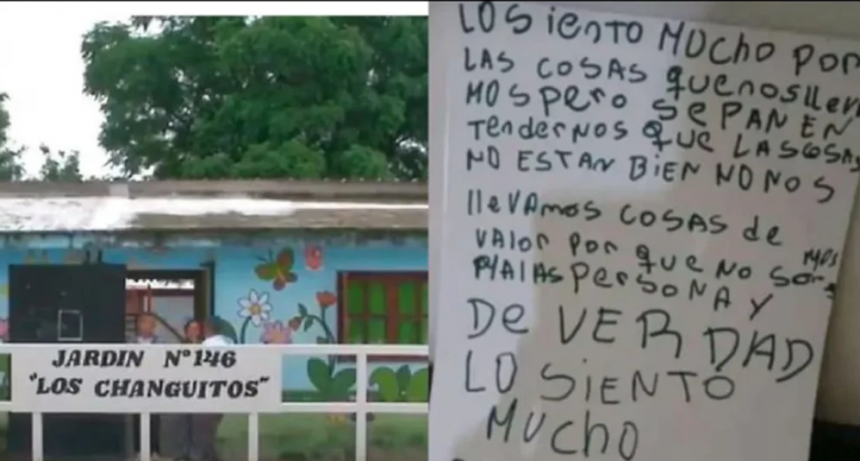 JARDIN N° 146
"LOS CHANGUITOS"
LO Siento MUCHO POR
LAS COSAS QUE nos llev
MOS Pero SEPAN EN
Tendernos QUE LAS COSAS
NO ESTAN BiEN NO NOS
llevAMOS COSAS de
VALOR POR QUE NO SOMOS
MALAS PERSONA Y
De VERDAD
LO SiENTO
MUCHO